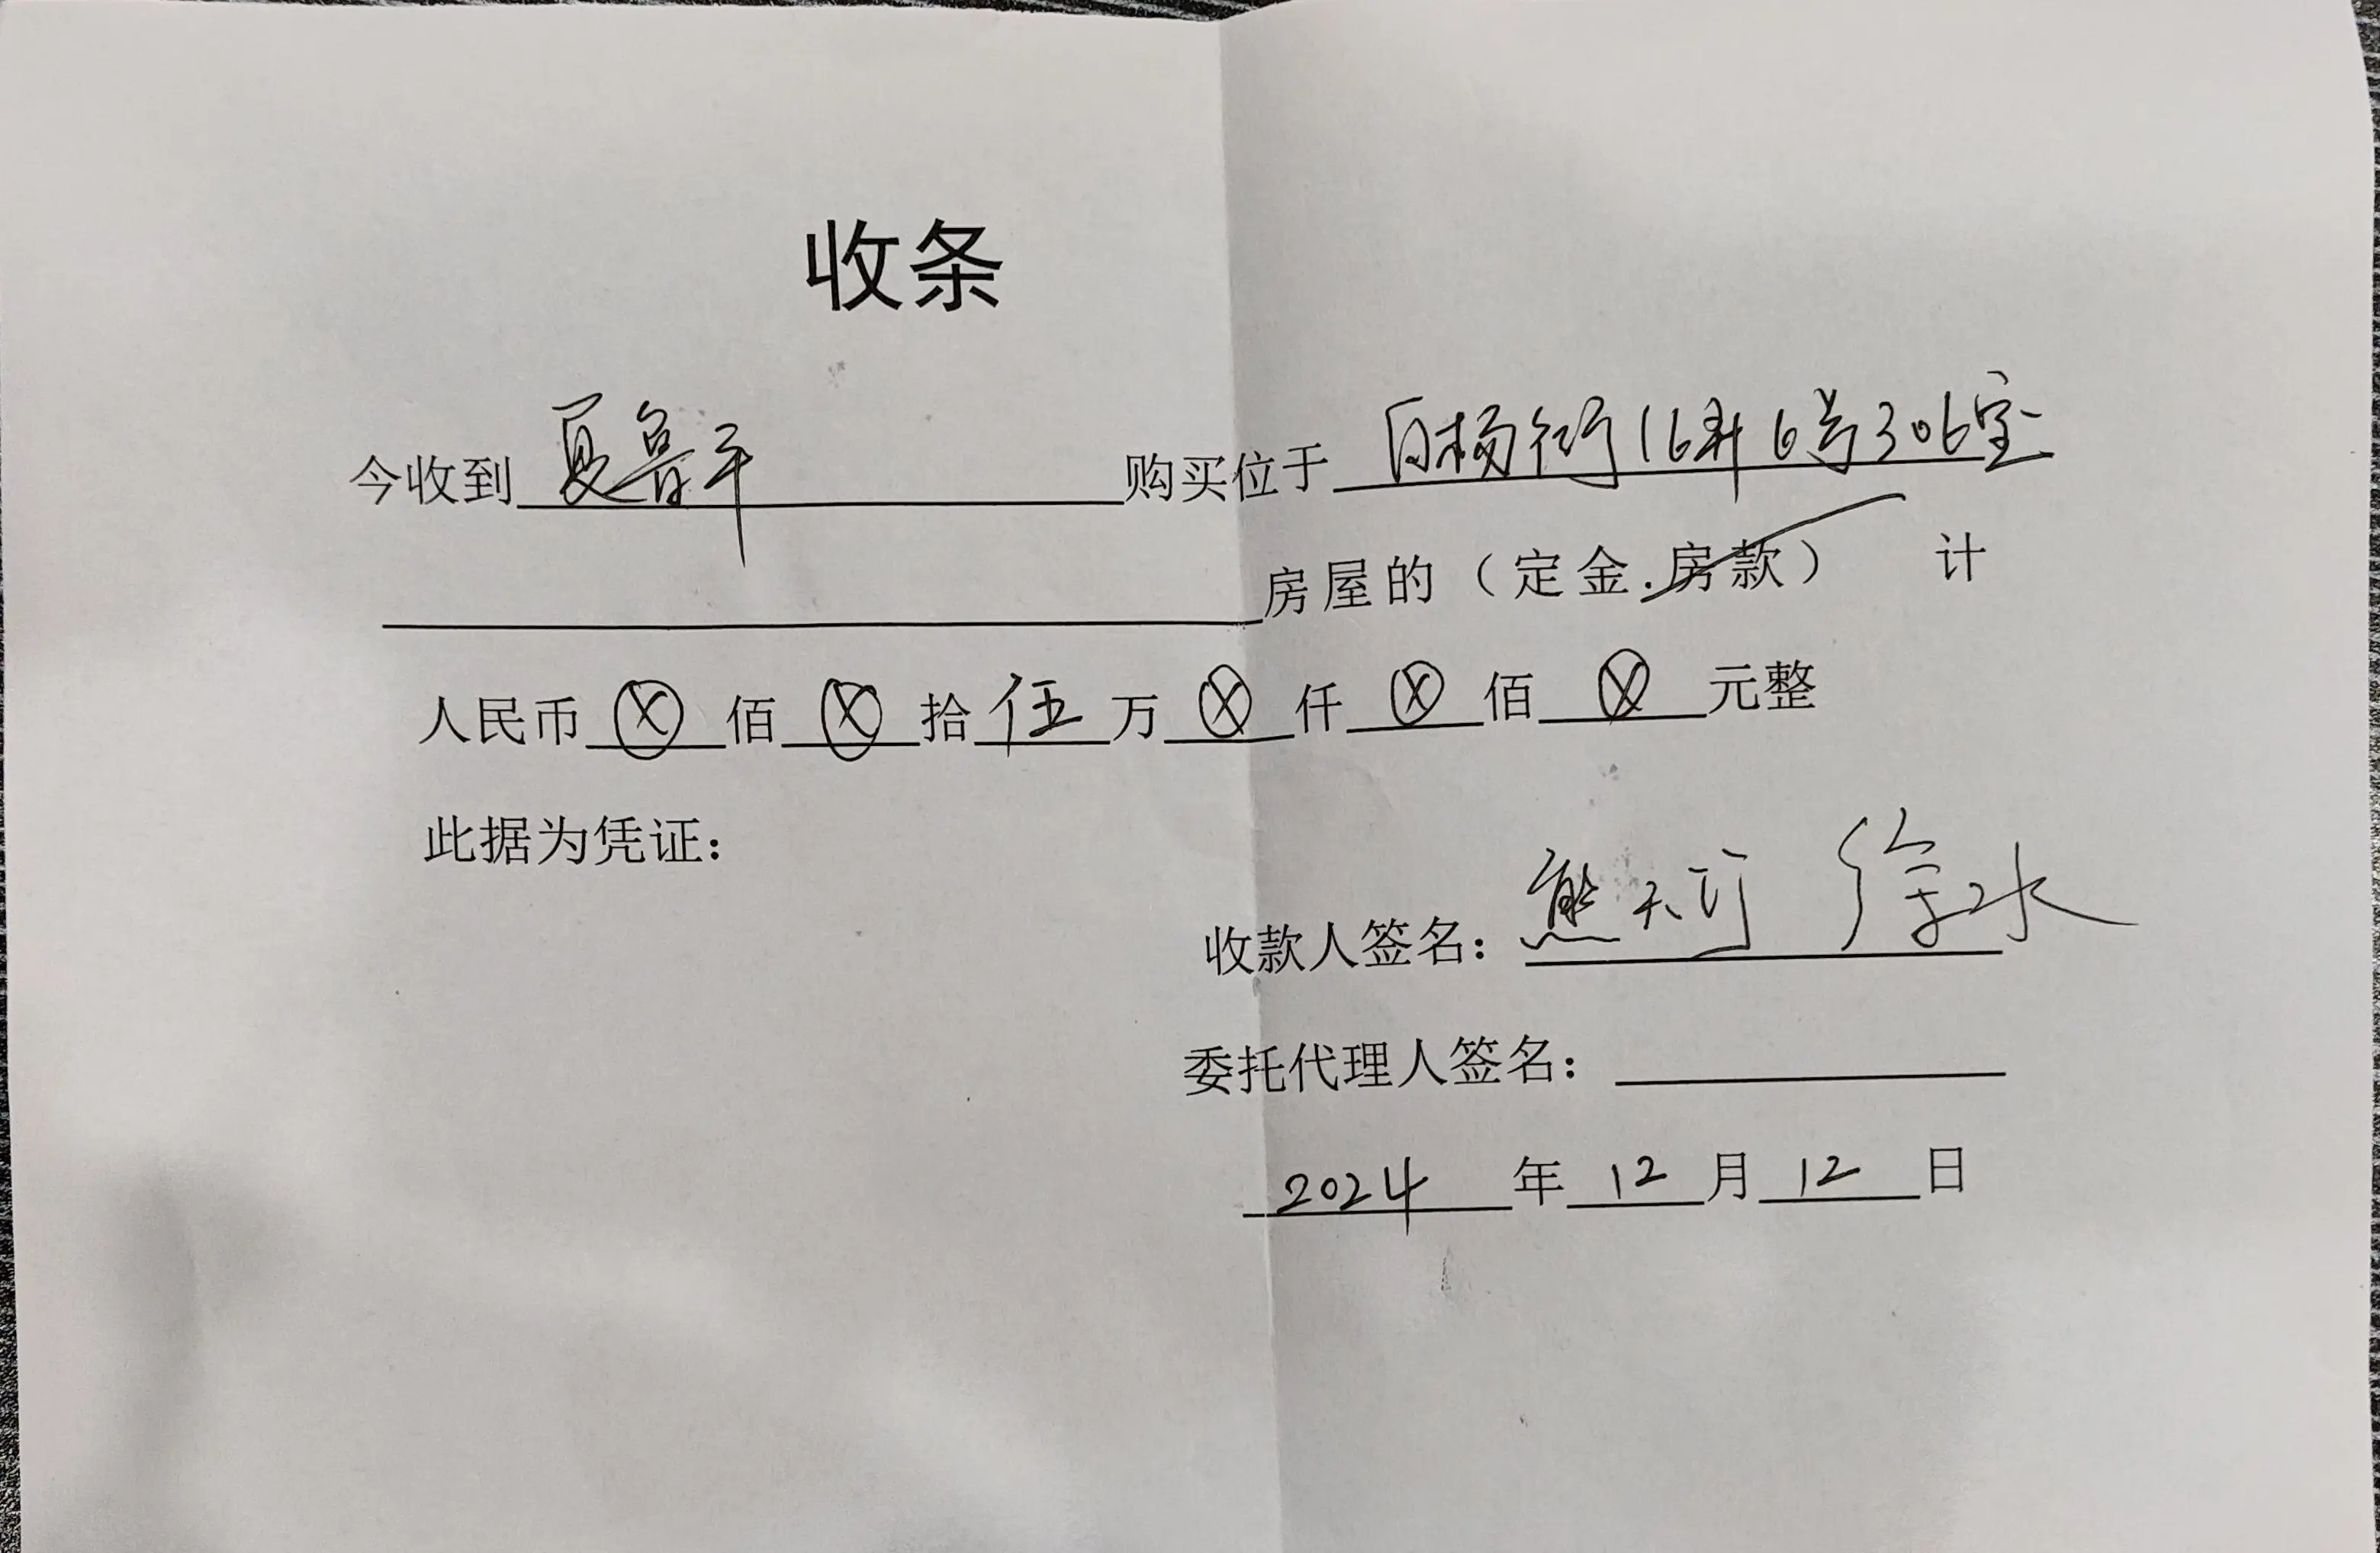 收条
今收到 夏鲁平 购买位于 白杨街16弄6号306室
房屋的（定金.房款） 计
人民币 ⓧ 佰 ⓧ 拾 伍 万 ⓧ 仟 ⓧ 佰 ⓧ 元整
此据为凭证：
收款人签名：熊天可
委托代理人签名：
2024 年 12 月 12 日